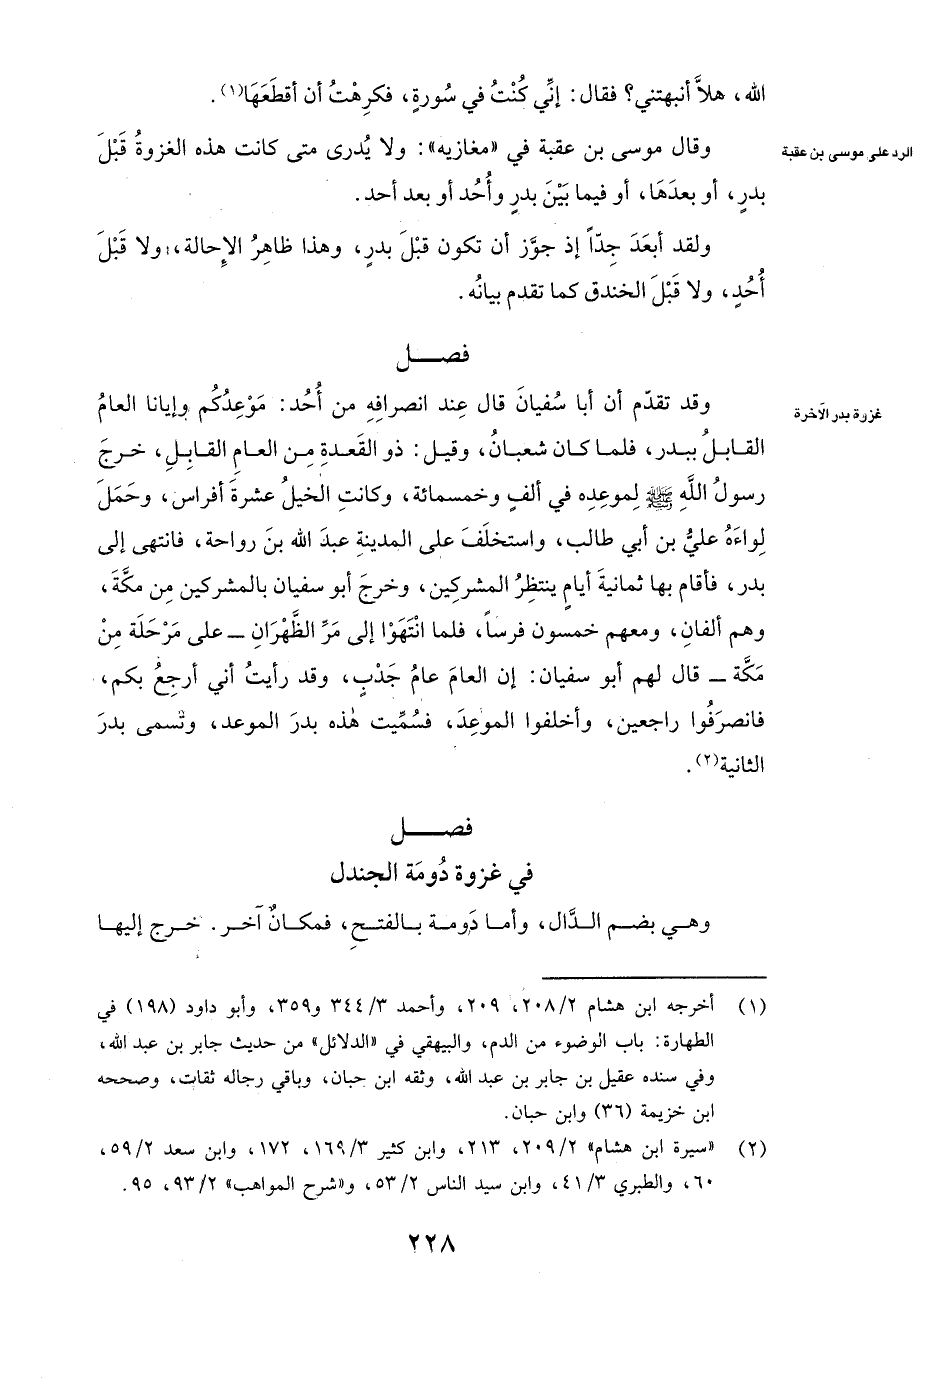 الله، هلاَّ أنبهتني؟ فقال: إنِّي كُنْتُ في سُورةٍ، فكرِهْتُ أن أقطَعَهَا(١).
الرد على موسى بن عقبة
وقال موسى بن عقبة في «مغازيه»: ولا يُدرى متى كانت هذه الغزوةُ قَبْلَ
بدرٍ، أو بعدَهَا، أو فيما بَيْنَ بدرٍ وأُحُد أو بعد أحد.
ولقد أبعَدَ جِدّاً إذ جوَّز أن تكون قبْلَ بدرٍ، وهذا ظاهِرُ الإِحالة، ولا قَبْلَ
أُحُدٍ، ولا قَبْلَ الخندق كما تقدم بيانُه.
فصـــل
غزوة بدر الآخرة
وقد تقدّم أن أبا سُفيانَ قال عِند انصرافِهِ من أُحُد: مَوْعِدُكُم وإيانا العامُ
القابلُ ببدر، فلما كان شعبانُ، وقيل: ذو القَعدةِ مِن العامِ القابِلِ، خرجَ
رسولُ اللَّهِ ﷺ لِموعِدِه في ألفٍ وخمسمائة، وكانتِ الخيلُ عشرةَ أفراس، وحَمَلَ
لِواءَهُ عليُّ بن أبي طالب، واستخلَفَ على المدينةِ عبدَ الله بنَ رواحة، فانتهى إلى
بدر، فأقام بها ثمانيةَ أيامٍ ينتظِرُ المشركين، وخرجَ أبو سفيان بالمشركين مِن مكَّةَ،
وهم ألفانِ، ومعهم خمسون فرساً، فلما انْتَهَوْا إلى مَرِّ الظَّهْرَانِ ــ على مَرْحَلَة مِنْ
مَكَّة ــ قال لهم أبو سفيان: إن العامَ عامُ جَدْبٍ، وقد رأيتُ أني أرجِعُ بكم،
فانصرَفُوا راجعين، وأخلفوا الموعِدَ، فسُمِّيت هٰذه بدرَ الموعد، وتُسمى بدرَ
الثانية(٢).
فصـــل
في غزوة دُومَة الجندل
وهي بضم الدَّال، وأما دَومة بالفتحِ، فمكانٌ آخر. خرج إليها
(١) أخرجه ابن هشام ٢٠٨/٢، ٢٠٩، وأحمد ٣٤٤/٣ و٣٥٩، وأبو داود (١٩٨) في
الطهارة: باب الوضوء من الدم، والبيهقي في «الدلائل» من حديث جابر بن عبد الله،
وفي سنده عقيل بن جابر بن عبد الله، وثقه ابن حبان، وباقي رجاله ثقات، وصححه
ابن خزيمة (٣٦) وابن حبان.
(٢) «سيرة ابن هشام» ٢٠٩/٢، ٢١٣، وابن كثير ١٦٩/٣، ١٧٢، وابن سعد ٥٩/٢،
٦٠، والطبري ٤١/٣، وابن سيد الناس ٥٣/٢، و«شرح المواهب» ٩٣/٢، ٩٥.
٢٢٨